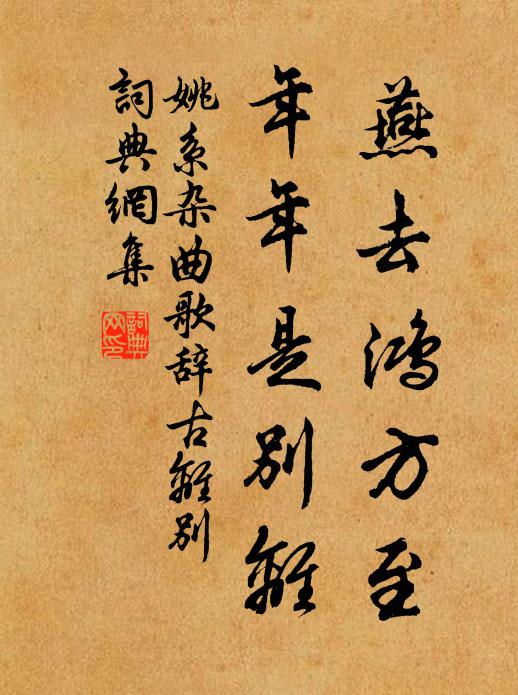 燕去鸿方至
年年是别離
姚系杂曲歌辞古離别
詞典網集
詞典
网印